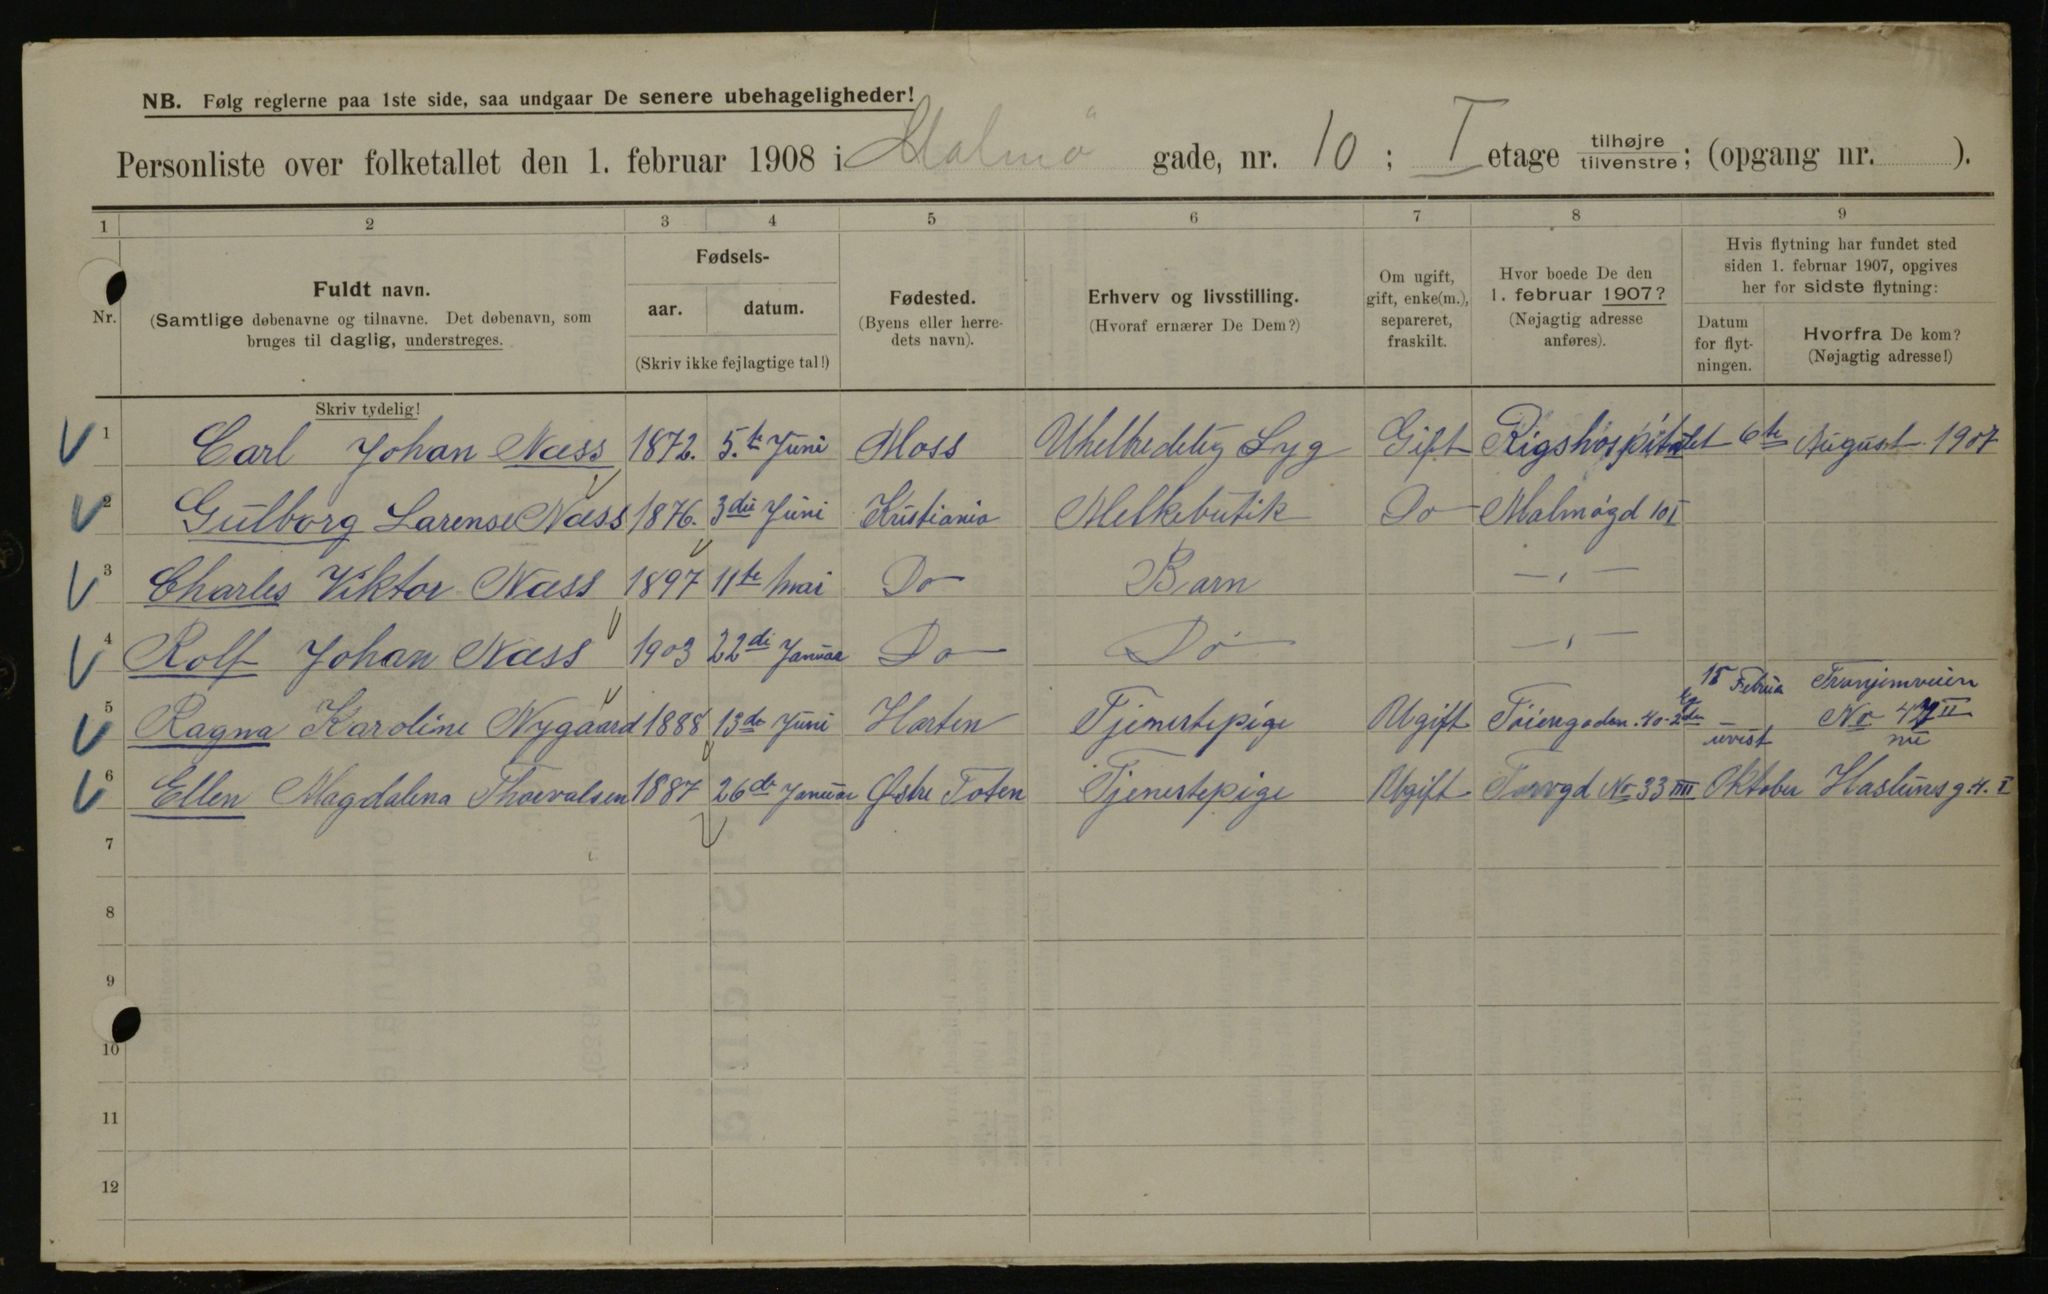 NB. Følg reglerne paa 1ste side, saa undgaar De senere ubehageligheder!
Personliste over folketallet den 1. februar 1908 i Malmö gade, nr. 10 ; I etage tilhøjre tilvenstre ; (opgang nr. ).
1 2 3 4 5 6 7 8 9
Nr.
Fuldt navn.
(Samtlige døbenavne og tilnavne. Det døbenavn, som
bruges til daglig, understreges.
Skriv tydelig!
Fødsels-
aar. datum.
(Skriv ikke fejlagtige tal!)
Fødested.
(Byens eller herre-
dets navn).
Erhverv og livsstilling.
(Hvoraf ernærer De Dem?)
Om ugift,
gift, enke(m.),
separeret,
fraskilt.
Hvor boede De den
1. februar 1907?
(Nøjagtig adresse
anføres).
Hvis flytning har fundet sted
siden 1. februar 1907, opgives
her for sidste flytning:
Datum
for flyt-
ningen.
Hvorfra De kom?
(Nøjagtig adresse!)
1 Carl Johan Næss 1872. 5.te Juni Moss Uhelbredelig Syg Gift Rigshospitalet 6te August 1907
2 Gulborg Larense Næss 1876. 3die Juni Kristiania Melkebutik Do Malmøgd 10 I
3 Charles Viktor Næss 1897 11te Mai Do Barn — , —
4 Rolf Johan Næss 1903 22di Januar Do Do — , —
15 Februar Tronjemveien
5 Ragna Karoline Nygaard 1888 13de Juni Harten Tjenestepige Ugift Töiengaden 40-2den No 47 II
uvist
6 Ellen Magdalena Thorvalsen 1887 26de Januar Østre Toten Tjenestepige Ugift Torvgd No 33 IIII Oktober Haslumsg. 4. I
7
8
9
10
11
12